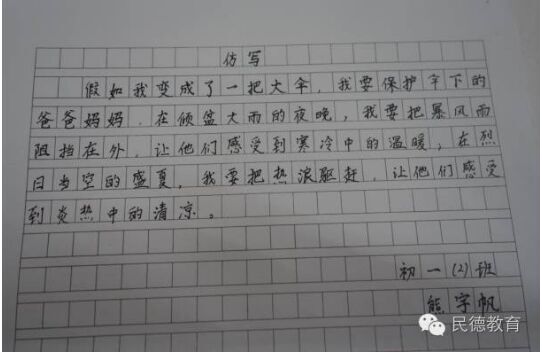 仿写
假如我变成了一把大伞,我要保护伞下的
爸爸妈妈.在倾盆大雨的夜晚,我要把暴风雨
阻挡在外,让他们感受到寒冷中的温暖,在烈
日当空的盛夏,我要把热浪驱赶,让他们感受
到炎热中的清凉。
初一(2)班
熊宇帆
民德教育